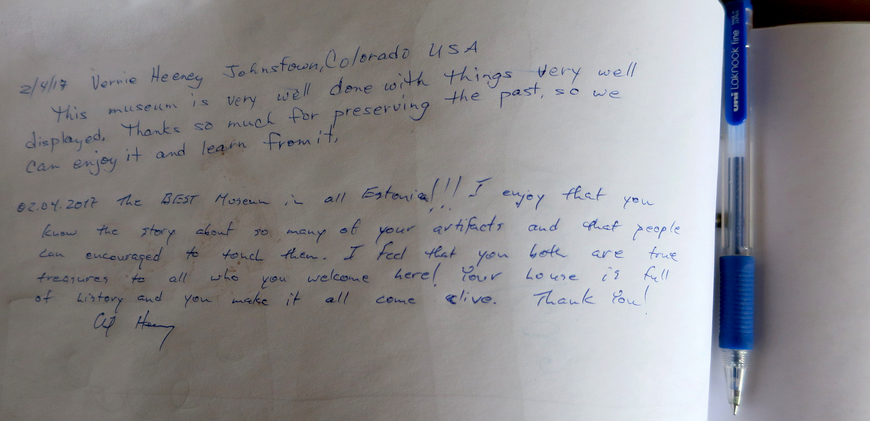 2/4/17 Vernie Heeney Johnstown, Colorado USA
This museum is very well done with things very well
displayed. Thanks so much for preserving the past, so we
can enjoy it and learn from it.
02.04.2017 The BEST Museum in all Estonia!!! I enjoy that you
know the story about so many of your artifacts and that people
can encouraged to touch them. I feel that you both are true
treasures to all who you welcome here! Your house is full
of history and you make it all come alive. Thank You!
uni LAKNOCK fine